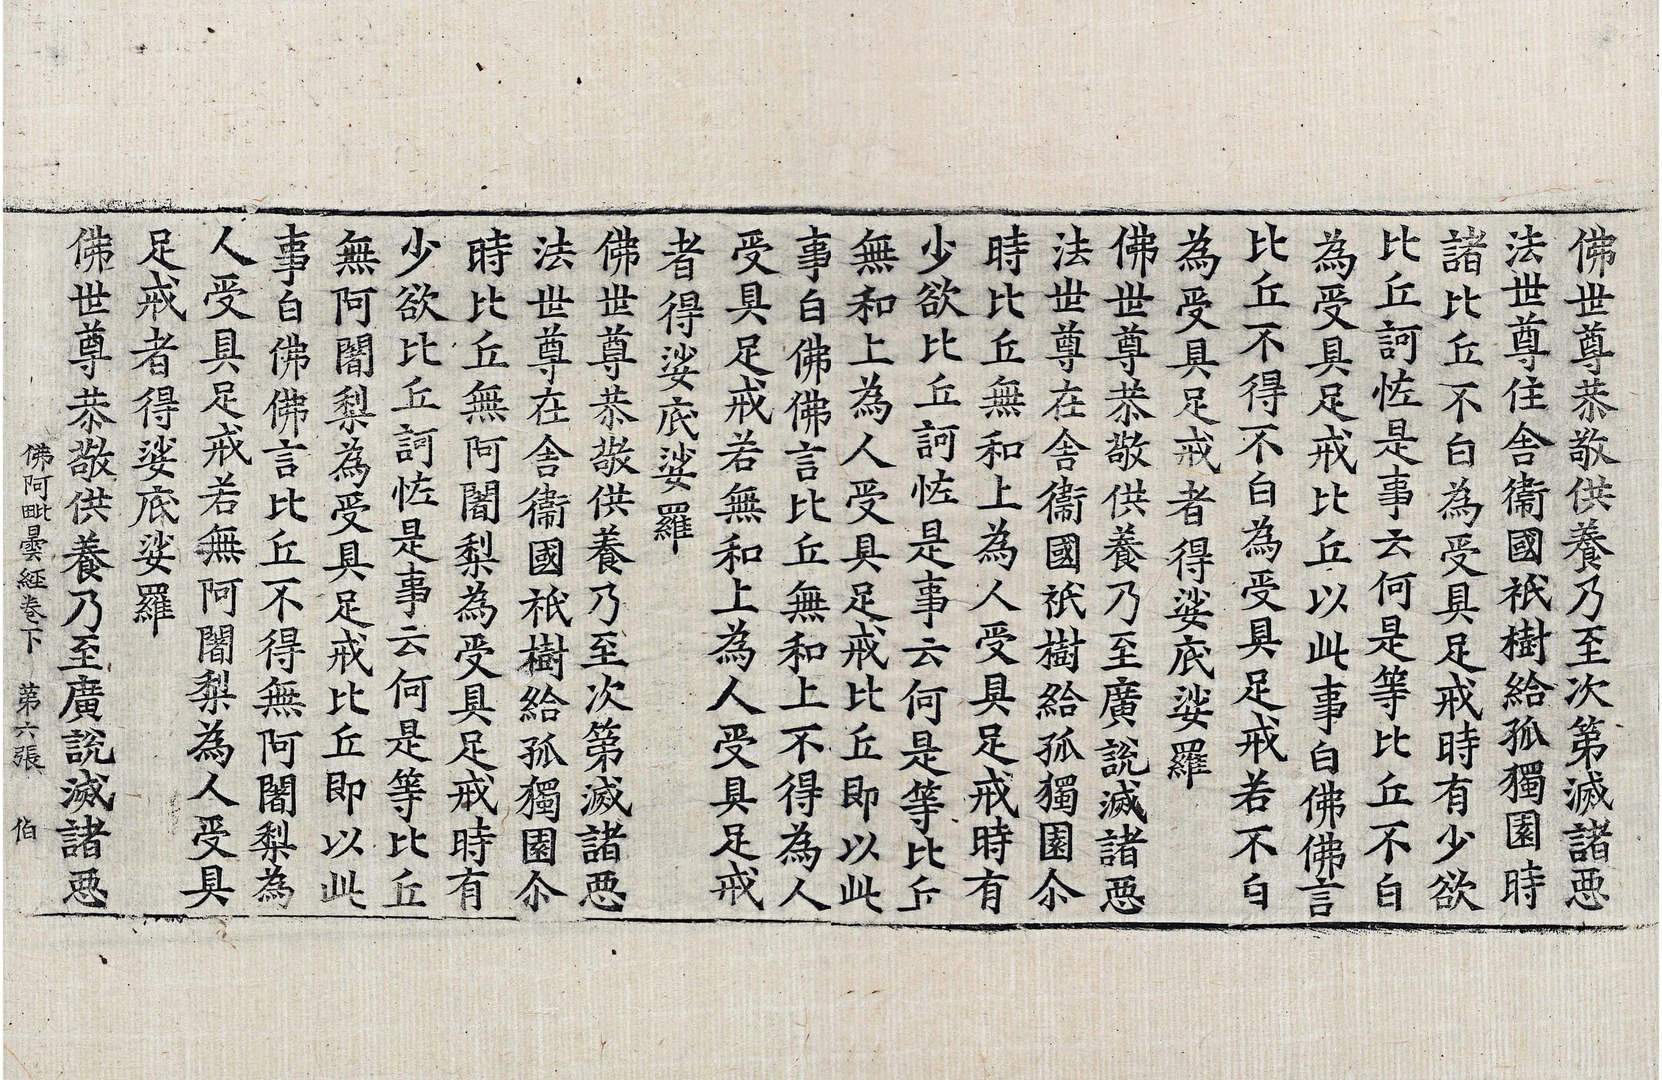 佛世尊恭敬供養乃至次第滅諸惡
法世尊住舍衛國祇樹給孤獨園時
諸比丘不白為受具足戒時有少欲
比丘訶恠是事云何是等比丘不白
為受具足戒比丘以此事白佛佛言
比丘不得不白為受具足戒若不白
為受具足戒者得娑底娑羅
佛世尊恭敬供養乃至廣說滅諸惡
法世尊在舍衛國祇樹給孤獨園尒
時比丘無和上為人受具足戒時有
少欲比丘訶恠是事云何是等比丘
無和上為人受具足戒比丘即以此
事白佛佛言比丘無和上不得為人
受具足戒若無和上為人受具足戒
者得娑底娑羅
佛世尊恭敬供養乃至次第滅諸惡
法世尊在舍衛國祇樹給孤獨園尒
時比丘無阿闍梨為受具足戒時有
少欲比丘訶恠是事云何是等比丘
無阿闍梨為受具足戒比丘即以此
事白佛佛言比丘不得無阿闍梨為
人受具足戒若無阿闍梨為人受具
足戒者得娑底娑羅
佛世尊恭敬供養乃至廣說滅諸惡
佛阿毗曇經卷下 第六張 伯